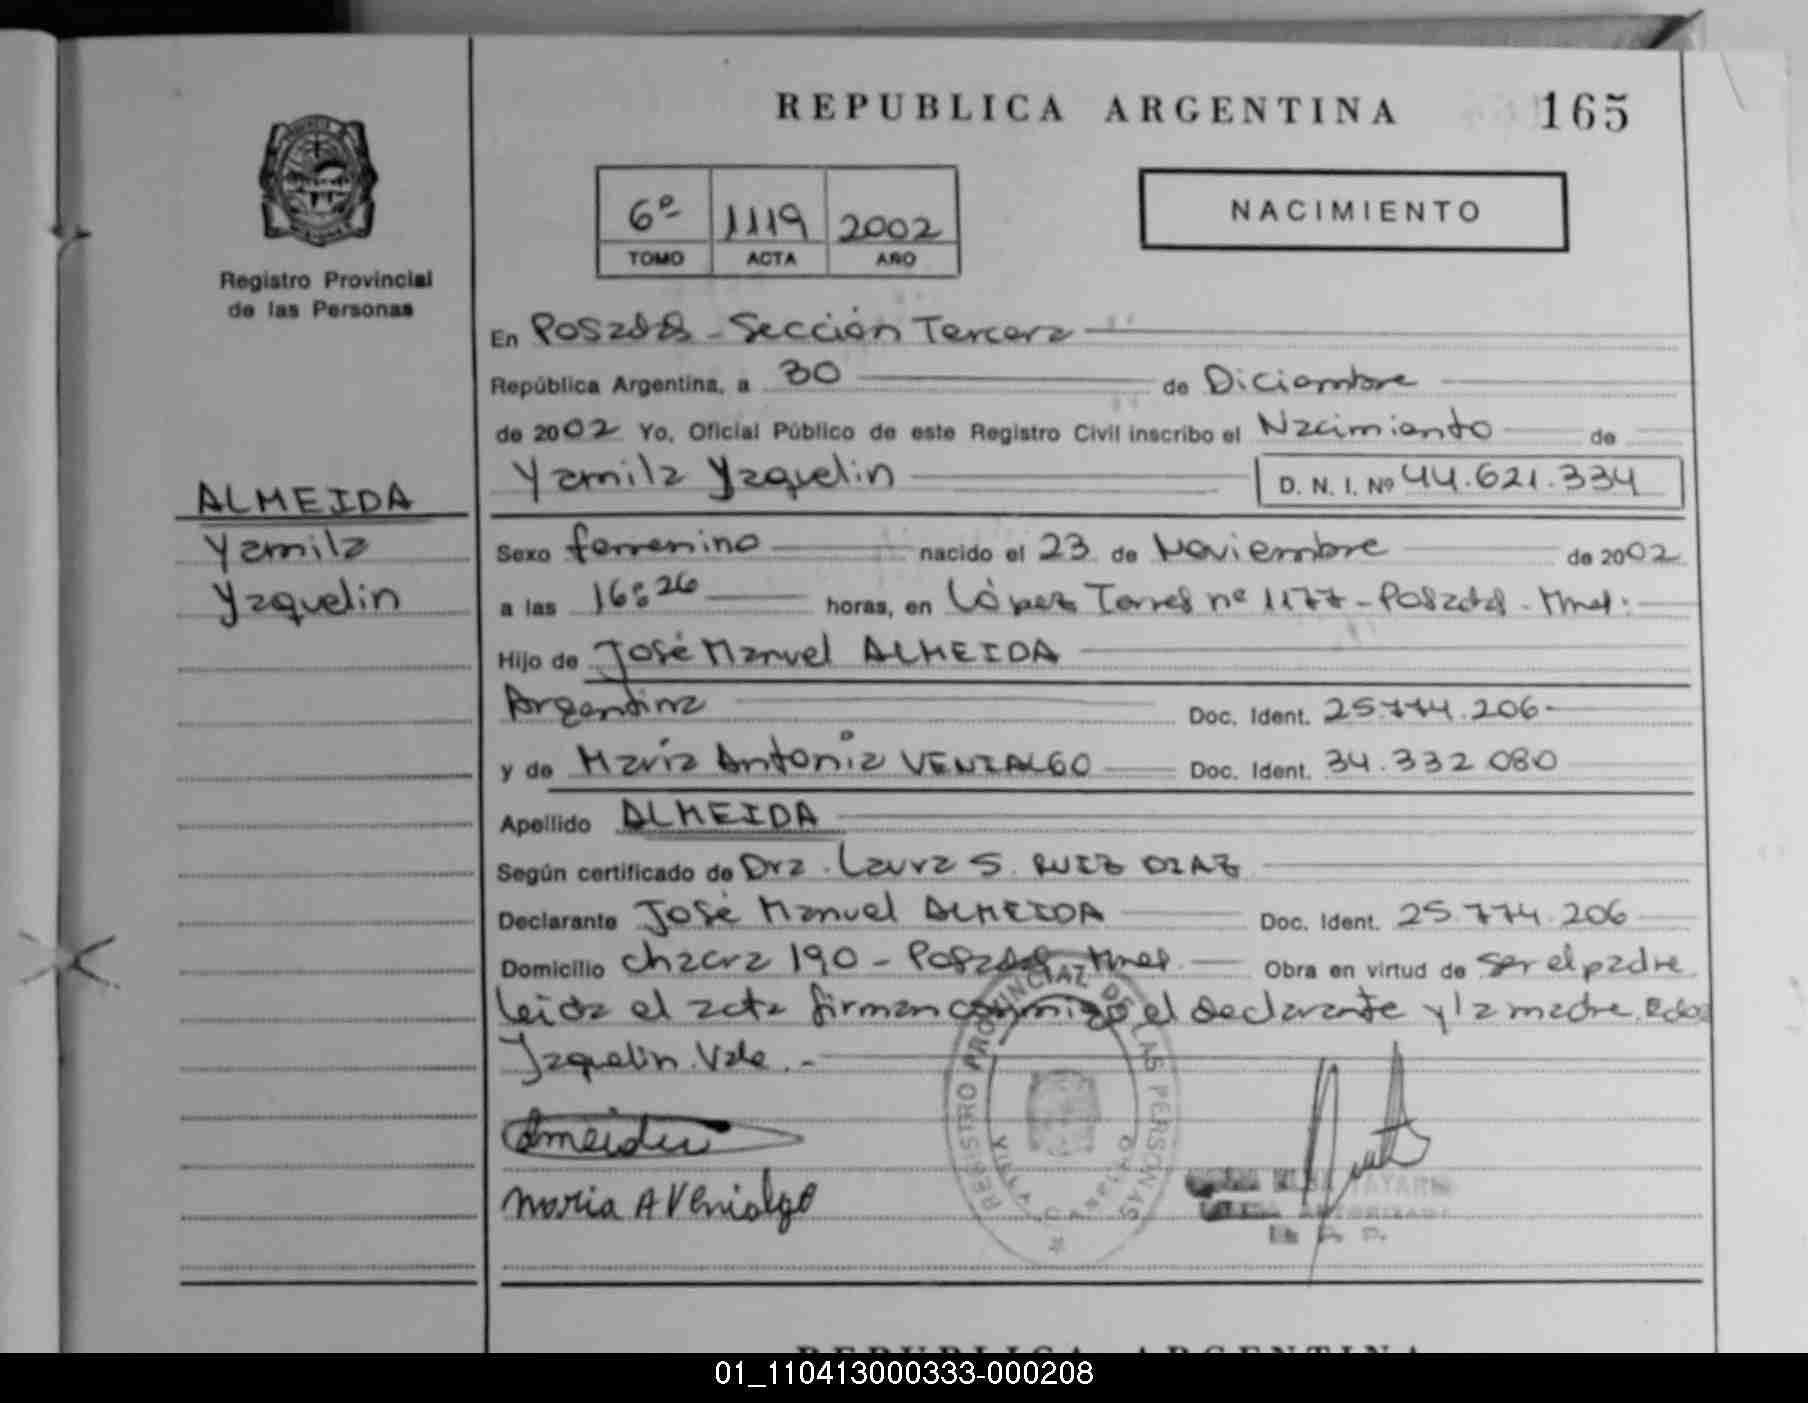 REPUBLICA ARGENTINA
165
6º 1119 2002
TOMO ACTA AÑO
NACIMIENTO
Registro Provincial
de las Personas
En Posadas - Sección Tercera
República Argentina, a 30 de Diciembre
de 2002 Yo, Oficial Público de este Registro Civil inscribo el Nacimiento de
Yamila Yaquelin D. N. I. Nº 44.621.334
ALMEIDA
Yamila
Yaquelin
Sexo femenino nacido el 23 de Noviembre de 2002
a las 16:26 horas, en López Torres nº 1177 - Posadas - Mnes.
Hijo de José Manuel ALMEIDA
Argentina Doc. Ident. 25.774.206
y de María Antonia VENIALGO Doc. Ident. 34.332.080
Apellido ALMEIDA
Según certificado de Dra. Laura S. RUIZ DIAZ
Declarante José Manuel ALMEIDA Doc. Ident. 25.774.206
Domicilio chacra 190 - Posadas Mnes. Obra en virtud de ser el padre
Leida el acta firman conmigo el declarante y la madre.
Yaquelin. Vale.-
Almeida
Maria A Venialgo
REGISTRO PROVINCIAL DE LAS PERSONAS
REPUBLICA ARGENTINA
01_110413000333-000208